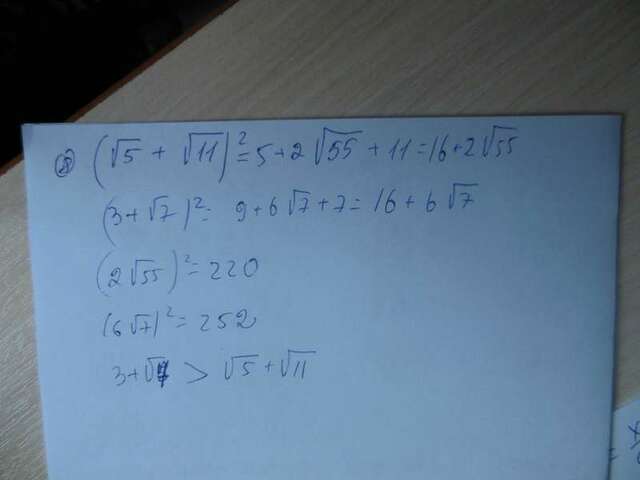 (√5 + √11)² = 5 + 2√55 + 11 = 16 + 2√55
(3 + √7)² = 9 + 6√7 + 7 = 16 + 6√7
(2√55)² = 220
(6√7)² = 252
3 + √7 > √5 + √11